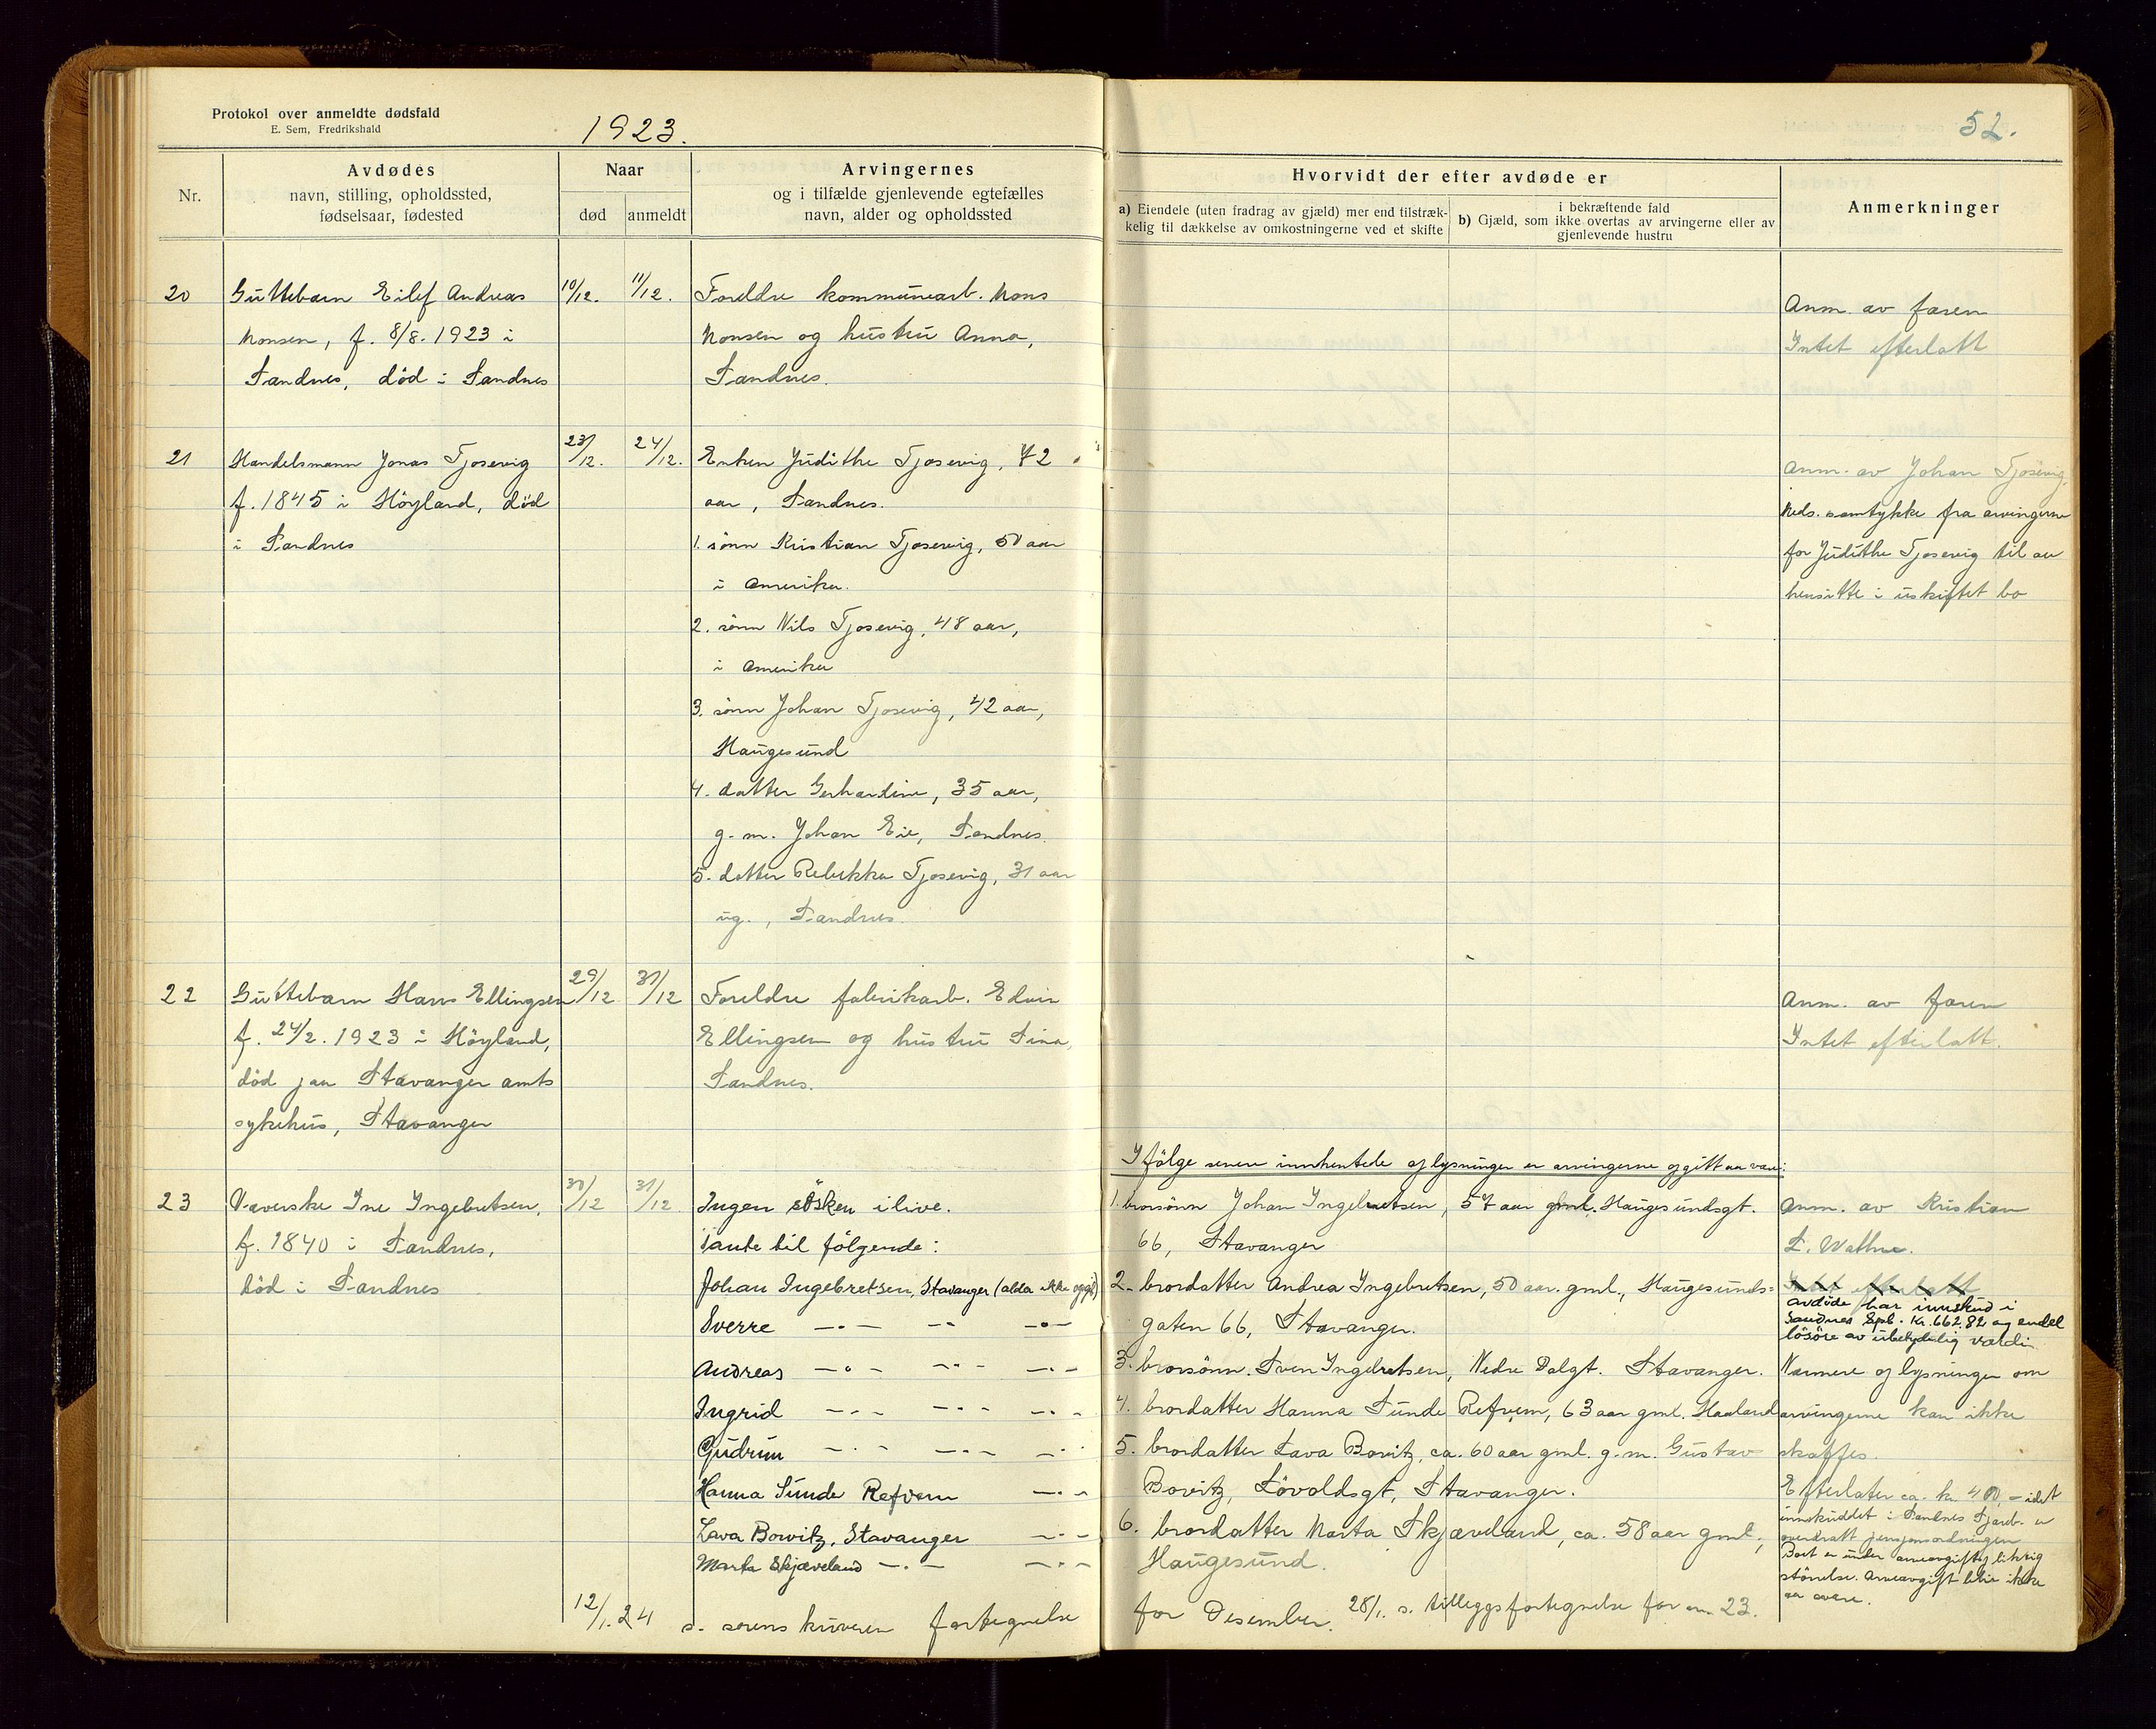 Protokol over anmeldte dødsfald
E. Sem, Fredrikshald
1923.
52.
Nr.
Avdødes
navn, stilling, opholdssted,
fødselsaar, fødested
Naar
død
anmeldt
Arvingernes
og i tilfælde gjenlevende egtefælles
navn, alder og opholdssted
Hvorvidt der efter avdøde er
a) Eiendele (uten fradrag av gjæld) mer end tilstræk-
kelig til dækkelse av omkostningerne ved et skifte
i bekræftende fald
b) Gjæld, som ikke overtas av arvingerne eller av
gjenlevende hustru
Anmerkninger
20
Guttebarn Eilef Andreas
Monsen, f. 8/8. 1923 i
Sandnes, död i Sandnes
10/12.
11/12.
Foreldre kommunearb. Mons
Monsen og hustru Anna,
Sandnes.
Anm. av faren
Intet efterlatt
21
Handelsmann Jonas Tjosevig
f. 1845 i Höyland, död
i Sandnes
23/12.
24/12.
Enken Judithe Tjosevig, 72
aar, Sandnes.
1. sönn Kristian Tjosevig, 50 aar
i Amerika.
2. sönn Nils Tjosevig, 48 aar,
i Amerika
3. sönn Johan Tjosevig, 42 aar,
Haugesund
4. datter Gerhardine, 35 aar,
g. m. Johan Eie, Sandnes.
5. datter Rebekka Tjosevig, 31 aar
ug., Sandnes.
Anm. av Johan Tjosevig,
Meds. samtykke fra arvingerne
for Judithe Tjosevig til aa
hensitte i uskiftet bo
22
Guttebarn Hans Ellingsen
f. 24/2. 1923 i Höyland,
död paa Stavanger amts
sykehus, Stavanger
29/12
31/12
Foreldre fabrikarb. Edvin
Ellingsen og hustru Sina,
Sandnes.
Anm. av faren
Intet efterlatt.
23
Væverske Ine Ingebretsen,
f. 1840 i Sandnes,
död i Sandnes
30/12
31/12
Ingen sösken ilive.
Tante til fölgende:
Johan Ingebretsen, Stavanger (alder ikke opgit)
Sverre —"— —"— —"—
Andreas —"— —"— —"—
Ingrid —"— —"— —"—
Gudrun —"— —"— —"—
Hanna Sunde Refvem —"—
Lava Bowitz, Stavanger —"—
Marta Skjæveland —"— —"—
Ifölge senere innhentede oplysninger er arvingerne opgitt aa være:
1. brorsönn Johan Ingebretsen, 57 aar gml. Haugesundsgt.
66, Stavanger
2. brordatter Andrea Ingebretsen, 50 aar. gml., Haugesunds=
gaten 66, Stavanger.
3. brorsönn. Sven Ingebretsen, Nedre Dalgt. Stavanger.
4. brordatter Hanna Sunde Refvem, 63 aar gml. Haaland
5. brordatter Lava Bovitz, ca. 60 aar gml. g. m. Gustav
Bovitz, Lövoldsgt, Stavanger.
6. brordatter Marta Skjæveland, ca. 58 aar gml.,
Haugesund.
Anm. av Kristian
S. Wathne.
Intet efterlatt
Avdöde har innskud i
Sandnes Spb. Kr. 662,82 og endel
lösöre av ubetydelig værdi
Nærmere oplysninger om
arvingerne kan ikke
skaffes.
Efterlater ca. kr. 400,— idet
innskuddet i Sandnes Sparb. er
overdratt pensjonsordningen
Boet er under arveavgiftspliktig
störrelse. Arveavgift blir ikke
aa svare.
12/1. 24 s. sorenskriveren fortegnelse
for Desember. 28/1. s. tilleggsfortegnelse for nr. 23.